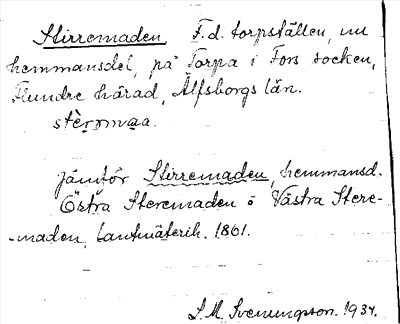 Stirremaden F.d. torpställen, nu
hemmansdel, på Torpa i Fors socken,
Flundre härad, Älfsborgs län.
jämför Stirremaden, hemmansd.
Östra Steremaden o Västra Stere-
-maden, Lantmäterih. 1861.
S.M. Svenungsson. 1934.